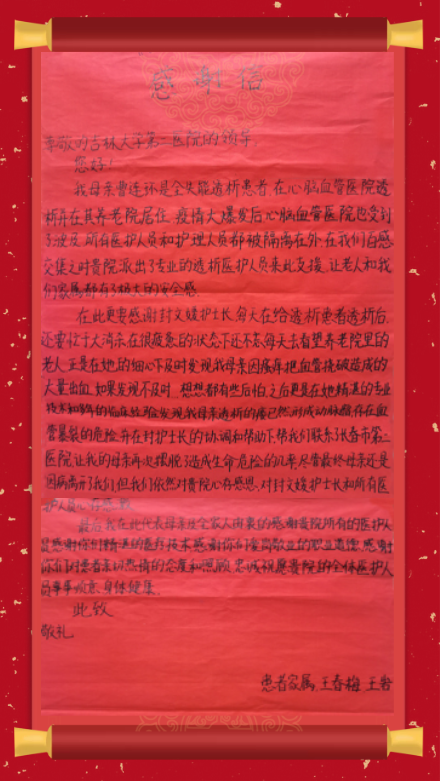 感谢信
尊敬的吉林大学第二医院的领导
您好！
我母亲曹连还是全失能透析患者在心脑血管医院透
析并在其养老院居住.疫情大爆发后心脑血管医院也受到
了波及所有医护人员和护理人员都被隔离在外在我们百感
交集之时贵院派出了专业的透析医护人员来此支援.让老人和我
们家属都有了极大的安全感.
在此更要感谢封文媛护士长,每天在给透析患者透析后
还要忙于大消杀在很疲惫的状态下还不忘每天去看望养老院里的
老人.正是在她的细心下及时发现我母亲因瘙痒把血管挠破造成的
大量出血.如果发现不及时 想想都有些后怕.之后更是在她精湛的专业
技术和多年的临床经验发现我母亲透析的瘘已然形成动脉瘤存在血
管暴裂的危险并在封护士长的协调和帮助下帮我们联系了长春市第二
医院让我的母亲再次摆脱了造成生命危险的几率.尽管最终母亲还是
因病离开我们,但我们依然对贵院心存感恩.对封文媛护士长和所有医
护人员心存感激
最后我在此代表母亲及全家人由衷的感谢贵院所有的医护人
员感谢你们精湛的医疗技术感谢你们爱岗敬业的职业道德.感谢
你们对患者亲切热情的态度和照顾.忠诚祝愿贵院的全体医护人
员事事顺意.身体健康.
此致
敬礼
患者家属,王春梅 王岩